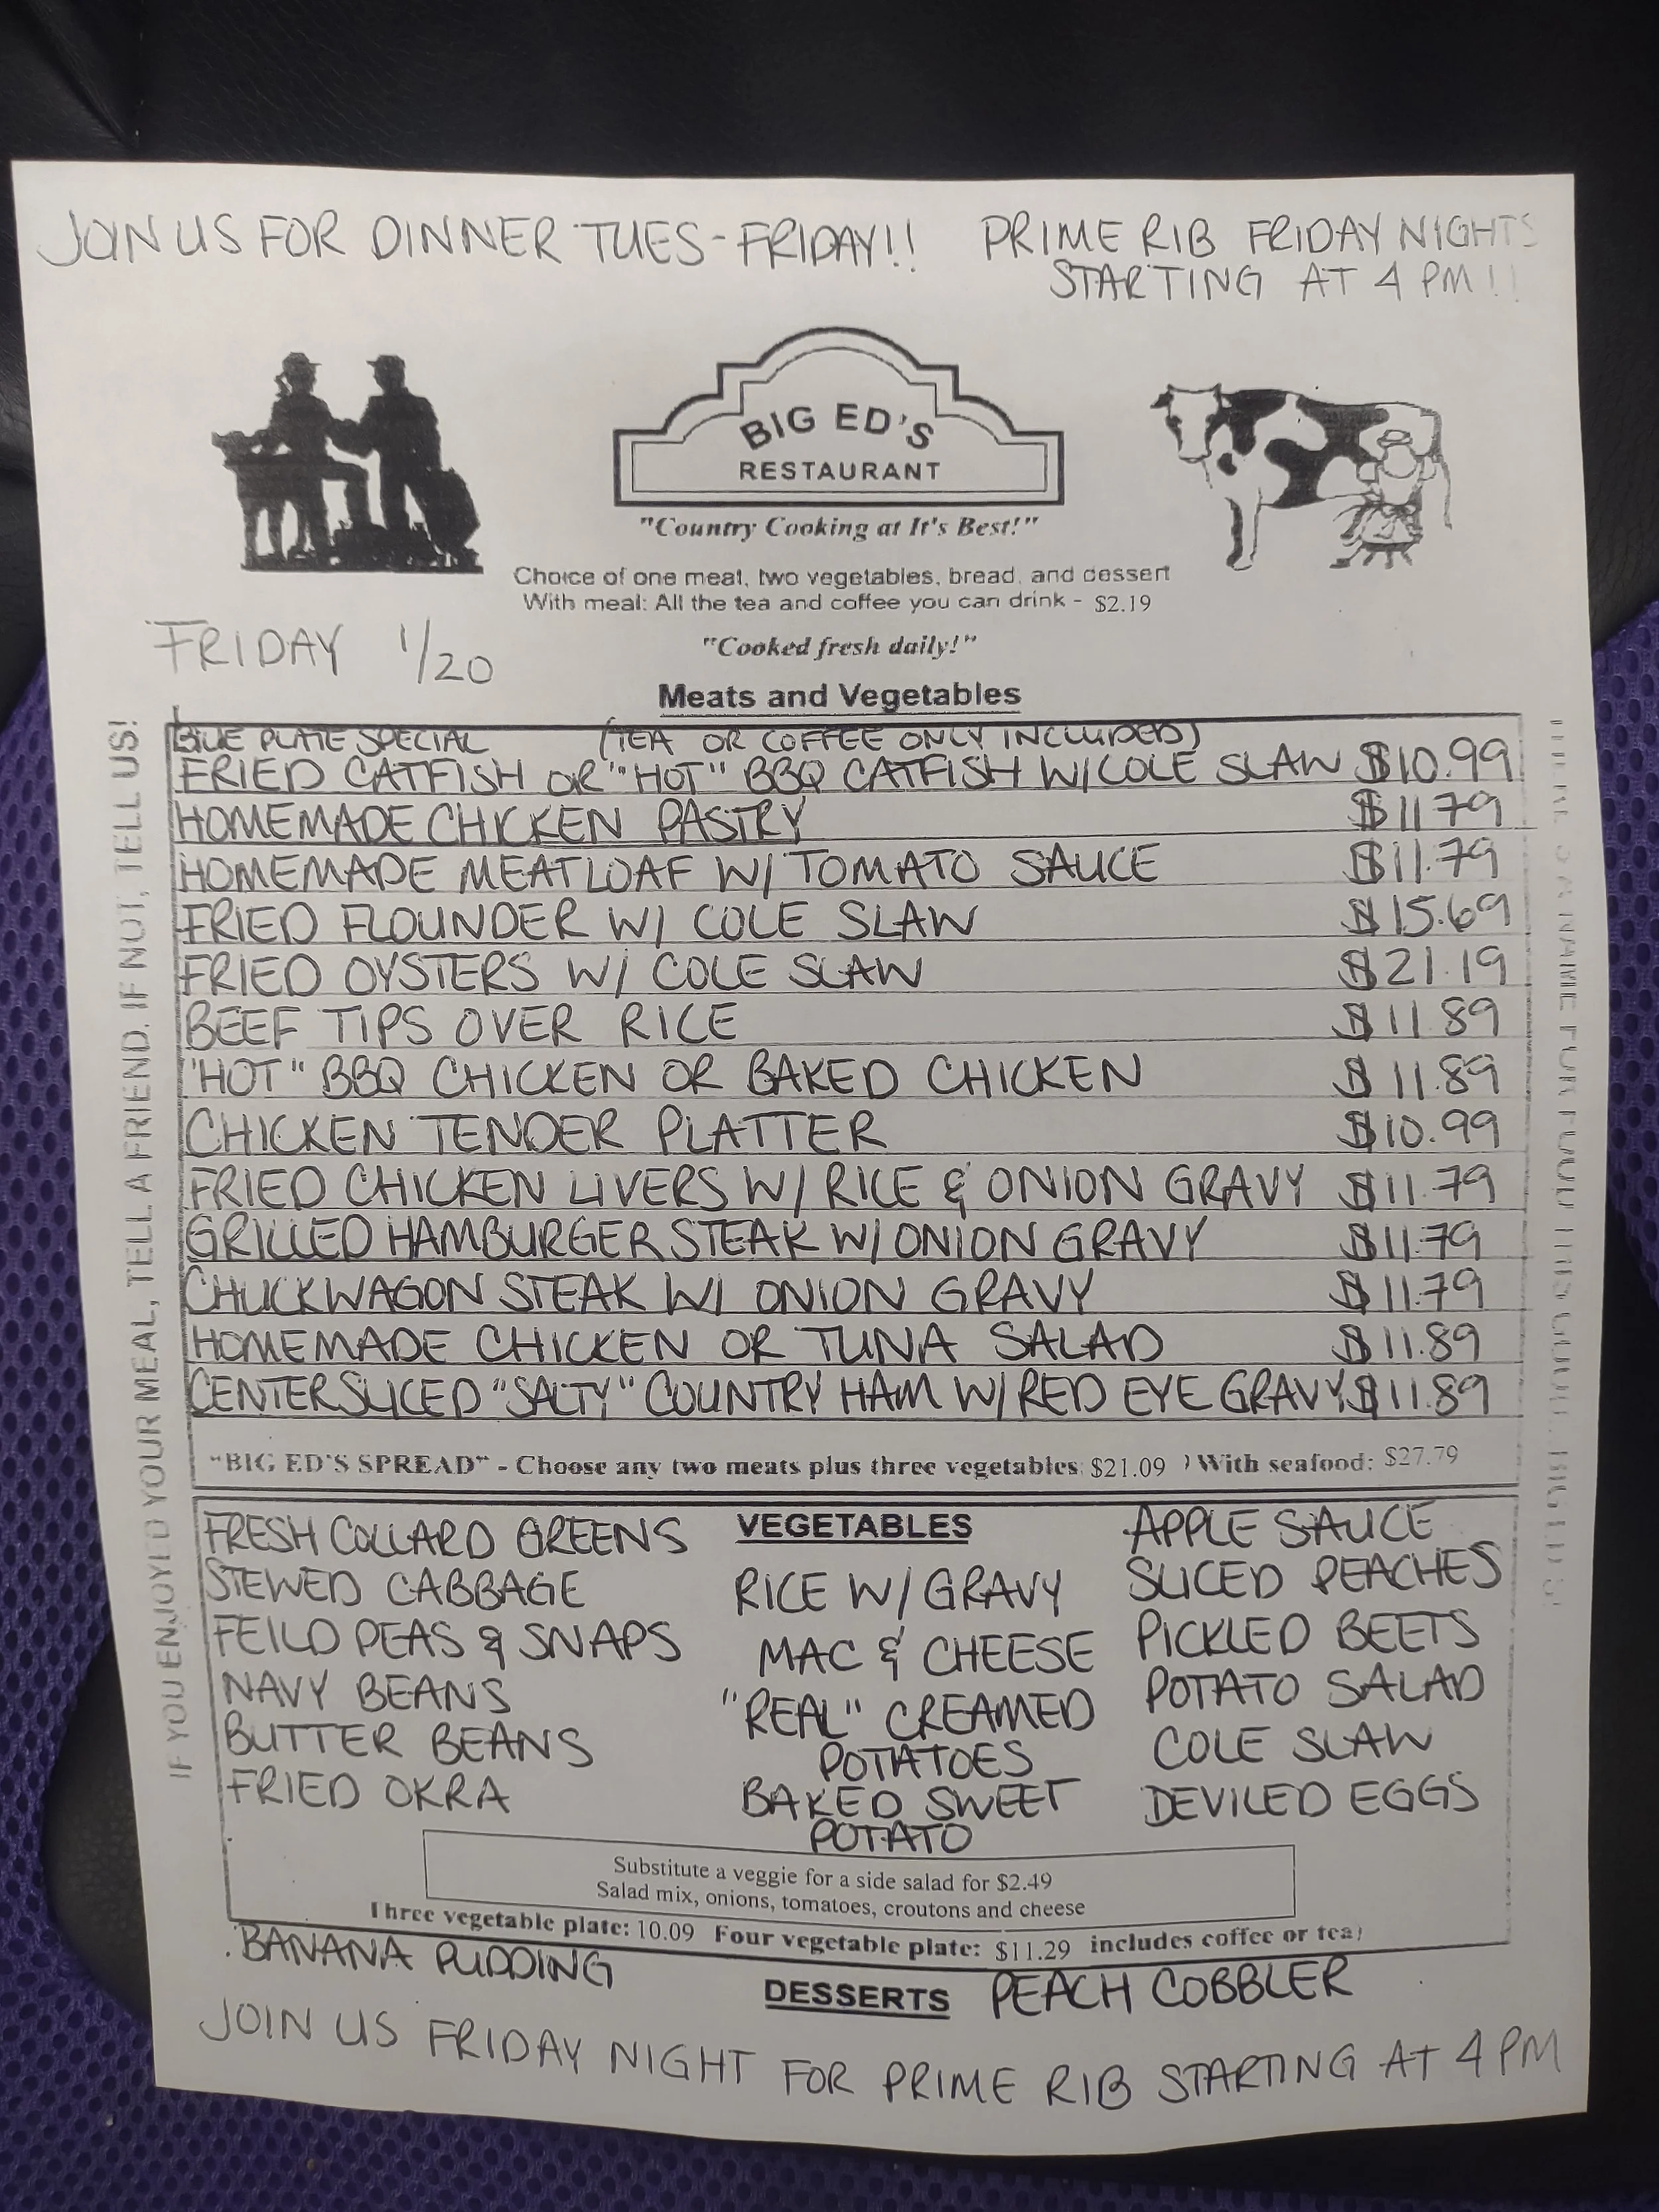 JOIN US FOR DINNER TUES-FRIDAY!!
PRIME RIB FRIDAY NIGHTS
STARTING AT 4 PM!!
BIG ED'S
RESTAURANT
"Country Cooking at It's Best!"
Choice of one meat, two vegetables, bread, and dessert
With meal: All the tea and coffee you can drink - $2.19
FRIDAY 1/20
"Cooked fresh daily!"
Meats and Vegetables
BLUE PLATE SPECIAL (TEA OR COFFEE ONLY INCLUDED)
FRIED CATFISH OR "HOT" BBQ CATFISH W/COLE SLAW $10.99
HOMEMADE CHICKEN PASTRY $11.79
HOMEMADE MEATLOAF W/ TOMATO SAUCE $11.79
FRIED FLOUNDER W/ COLE SLAW $15.69
FRIED OYSTERS W/ COLE SLAW $21.19
BEEF TIPS OVER RICE $11.89
"HOT" BBQ CHICKEN OR BAKED CHICKEN $11.89
CHICKEN TENDER PLATTER $10.99
FRIED CHICKEN LIVERS W/ RICE & ONION GRAVY $11.79
GRILLED HAMBURGER STEAK W/ ONION GRAVY $11.79
CHUCKWAGON STEAK W/ ONION GRAVY $11.79
HOMEMADE CHICKEN OR TUNA SALAD $11.89
CENTER SLICED "SALTY" COUNTRY HAM W/ RED EYE GRAVY $11.89
"BIG ED'S SPREAD" - Choose any two meats plus three vegetables: $21.09 ) With seafood: $27.79
VEGETABLES
FRESH COLLARD GREENS
STEWED CABBAGE
FEILD PEAS & SNAPS
NAVY BEANS
BUTTER BEANS
FRIED OKRA
RICE W/ GRAVY
MAC & CHEESE
"REAL" CREAMED
POTATOES
BAKED SWEET
POTATO
APPLE SAUCE
SLICED PEACHES
PICKLED BEETS
POTATO SALAD
COLE SLAW
DEVILED EGGS
Substitute a veggie for a side salad for $2.49
Salad mix, onions, tomatoes, croutons and cheese
Three vegetable plate: 10.09 Four vegetable plate: $11.29 includes coffee or tea)
BANANA PUDDING
DESSERTS
PEACH COBBLER
JOIN US FRIDAY NIGHT FOR PRIME RIB STARTING AT 4 PM
IF YOU ENJOYED YOUR MEAL, TELL A FRIEND. IF NOT, TELL US!
A NAME FOR FOOD THIS GOOD... BIG ED'S